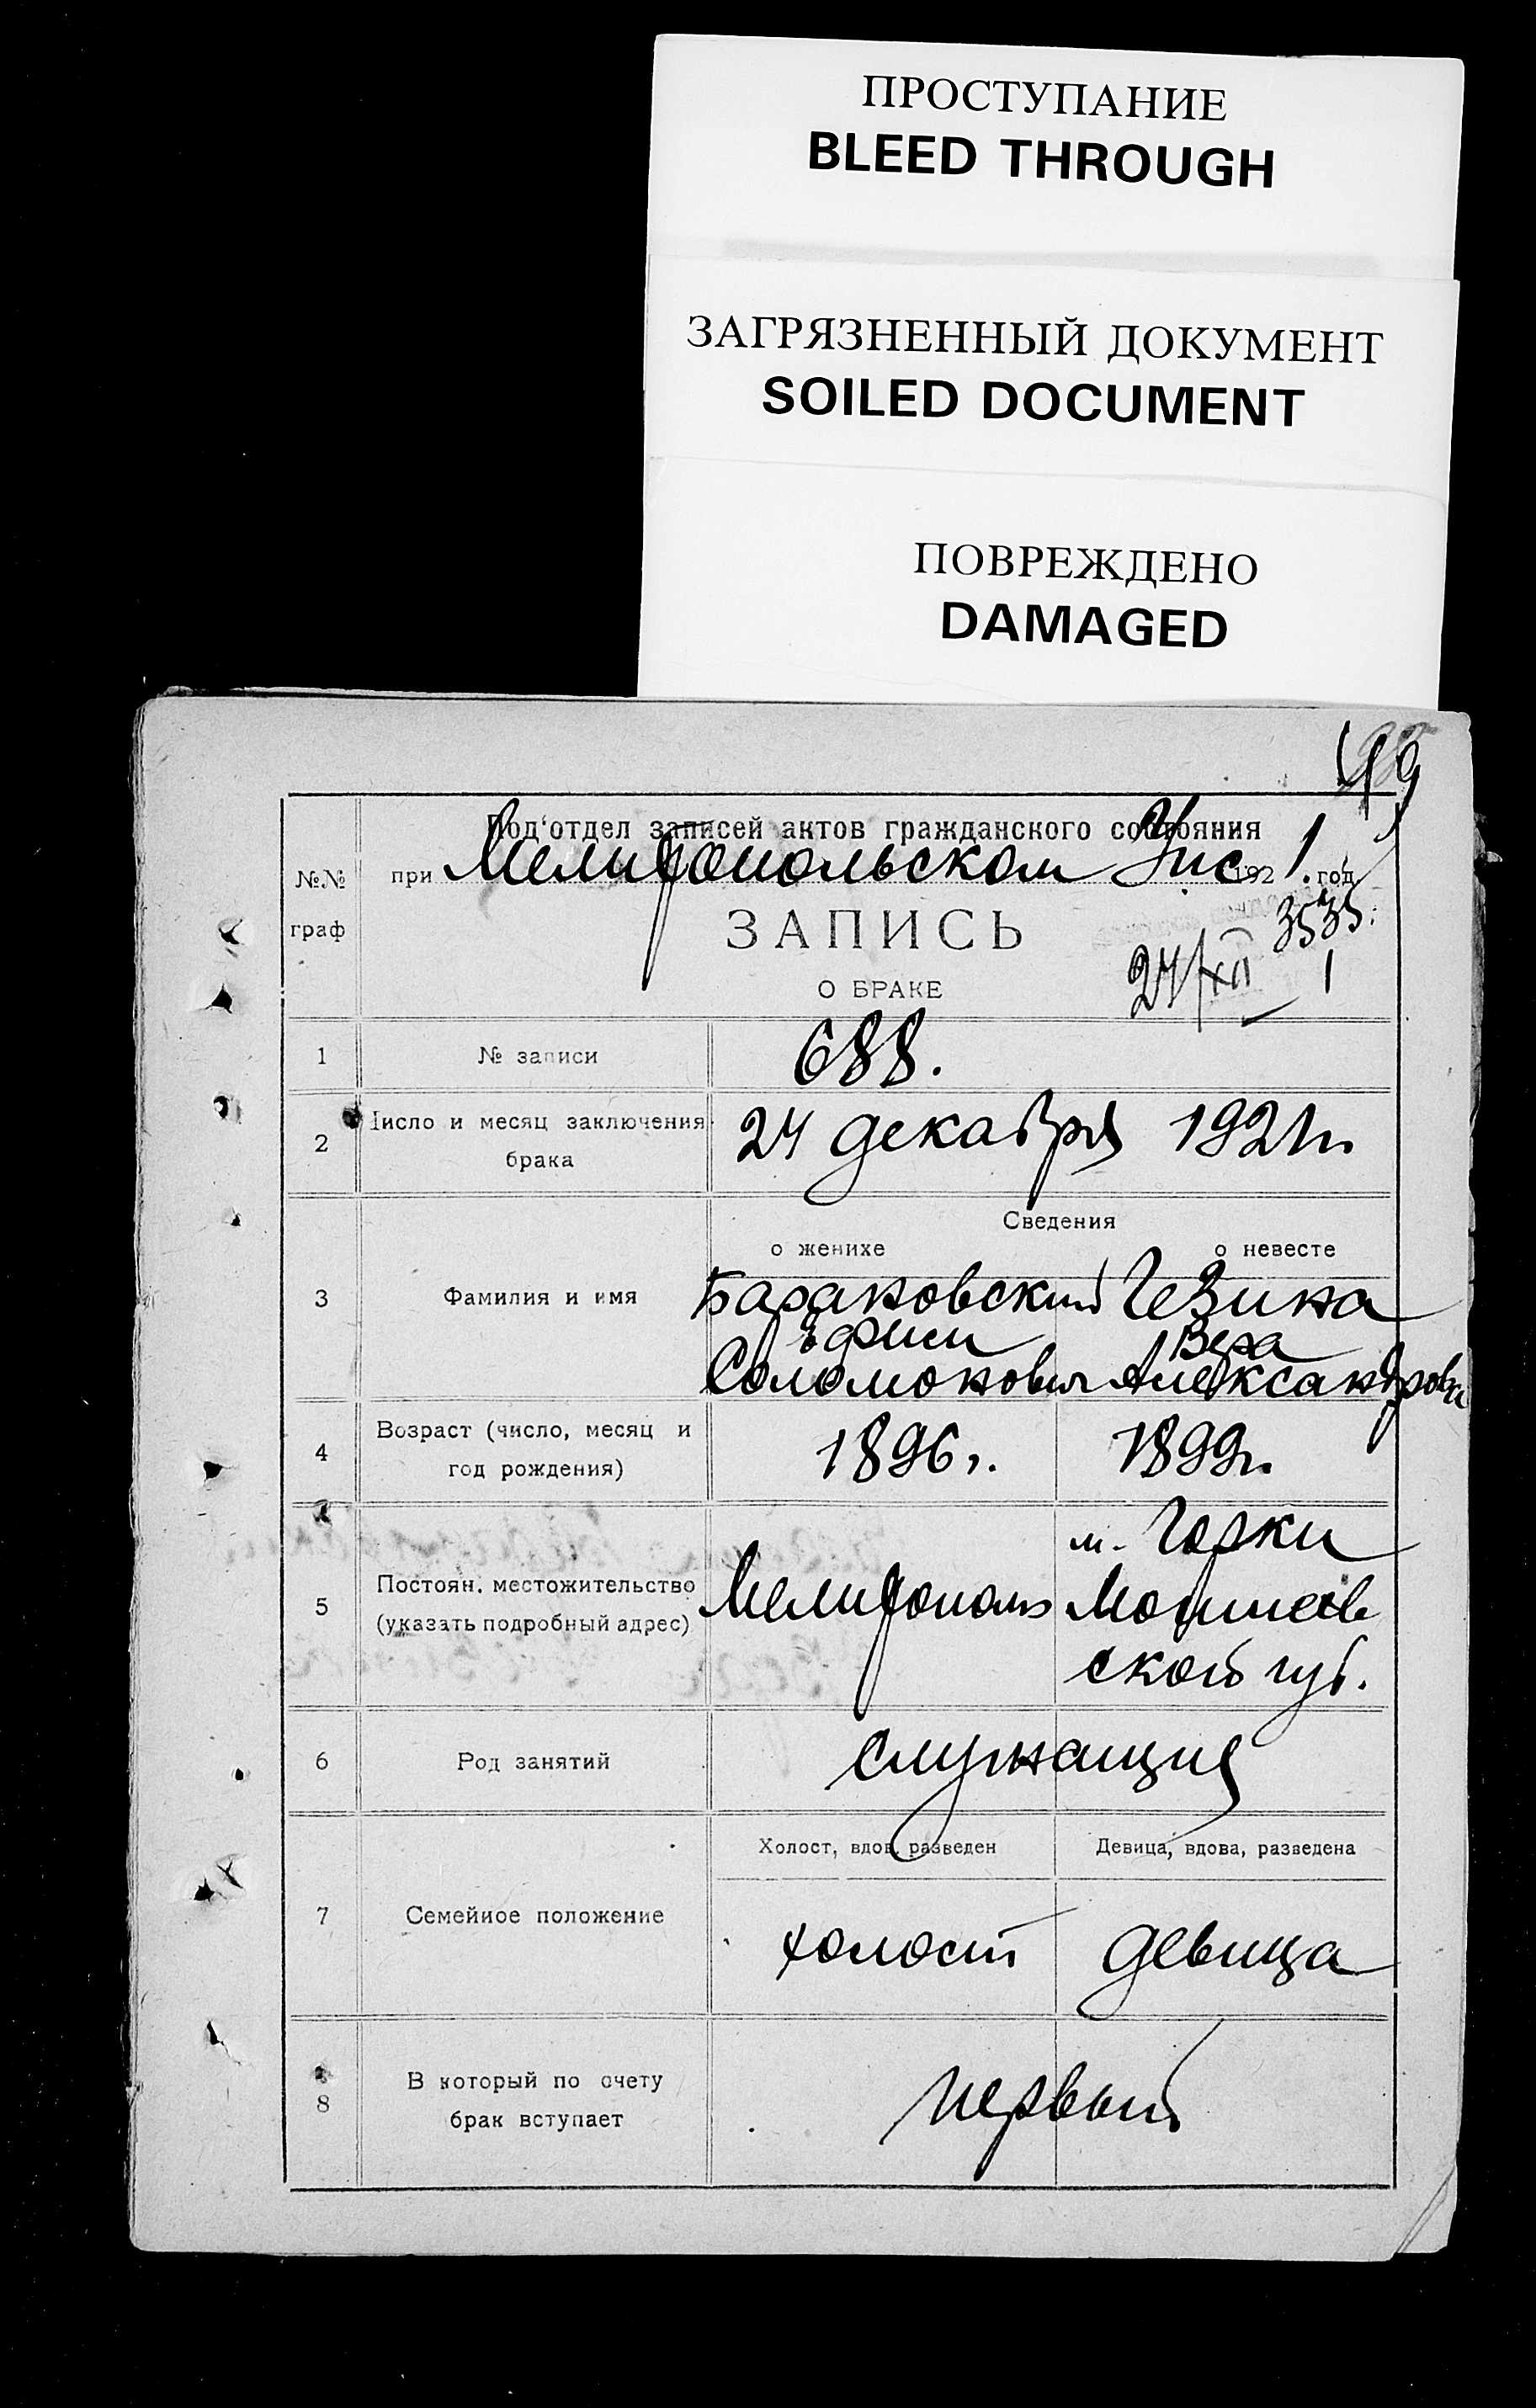 ПРОСТУПАНИЕ
BLEED THROUGH
ЗАГРЯЗНЕННЫЙ ДОКУМЕНТ
SOILED DOCUMENT
ПОВРЕЖДЕНО
DAMAGED
№№ граф
Под‘отдел записей актов гражданского состояния
при Мелитопольском Уис 1921. год
ЗАПИСЬ
3535.
О БРАКЕ
24/XII 1
1 № записи 688.
2 Число и месяц заключения
брака
24 декабря 1921г.
Сведения
о женихе о невесте
3 Фамилия и имя
Барановский Чезина
Ефим Вера
Соломонович Александрова
4 Возраст (число, месяц и
год рождения)
1896г. 1899г.
5 Постоян. местожительство
(указать подробный адрес)
Мелитополь
м. Горки
Могилев
ской губ.
6 Род занятий служащие
7 Семейное положение
Холост, вдов, разведен Девица, вдова, разведена
холост девица
8 В который по счету
брак вступает
первый